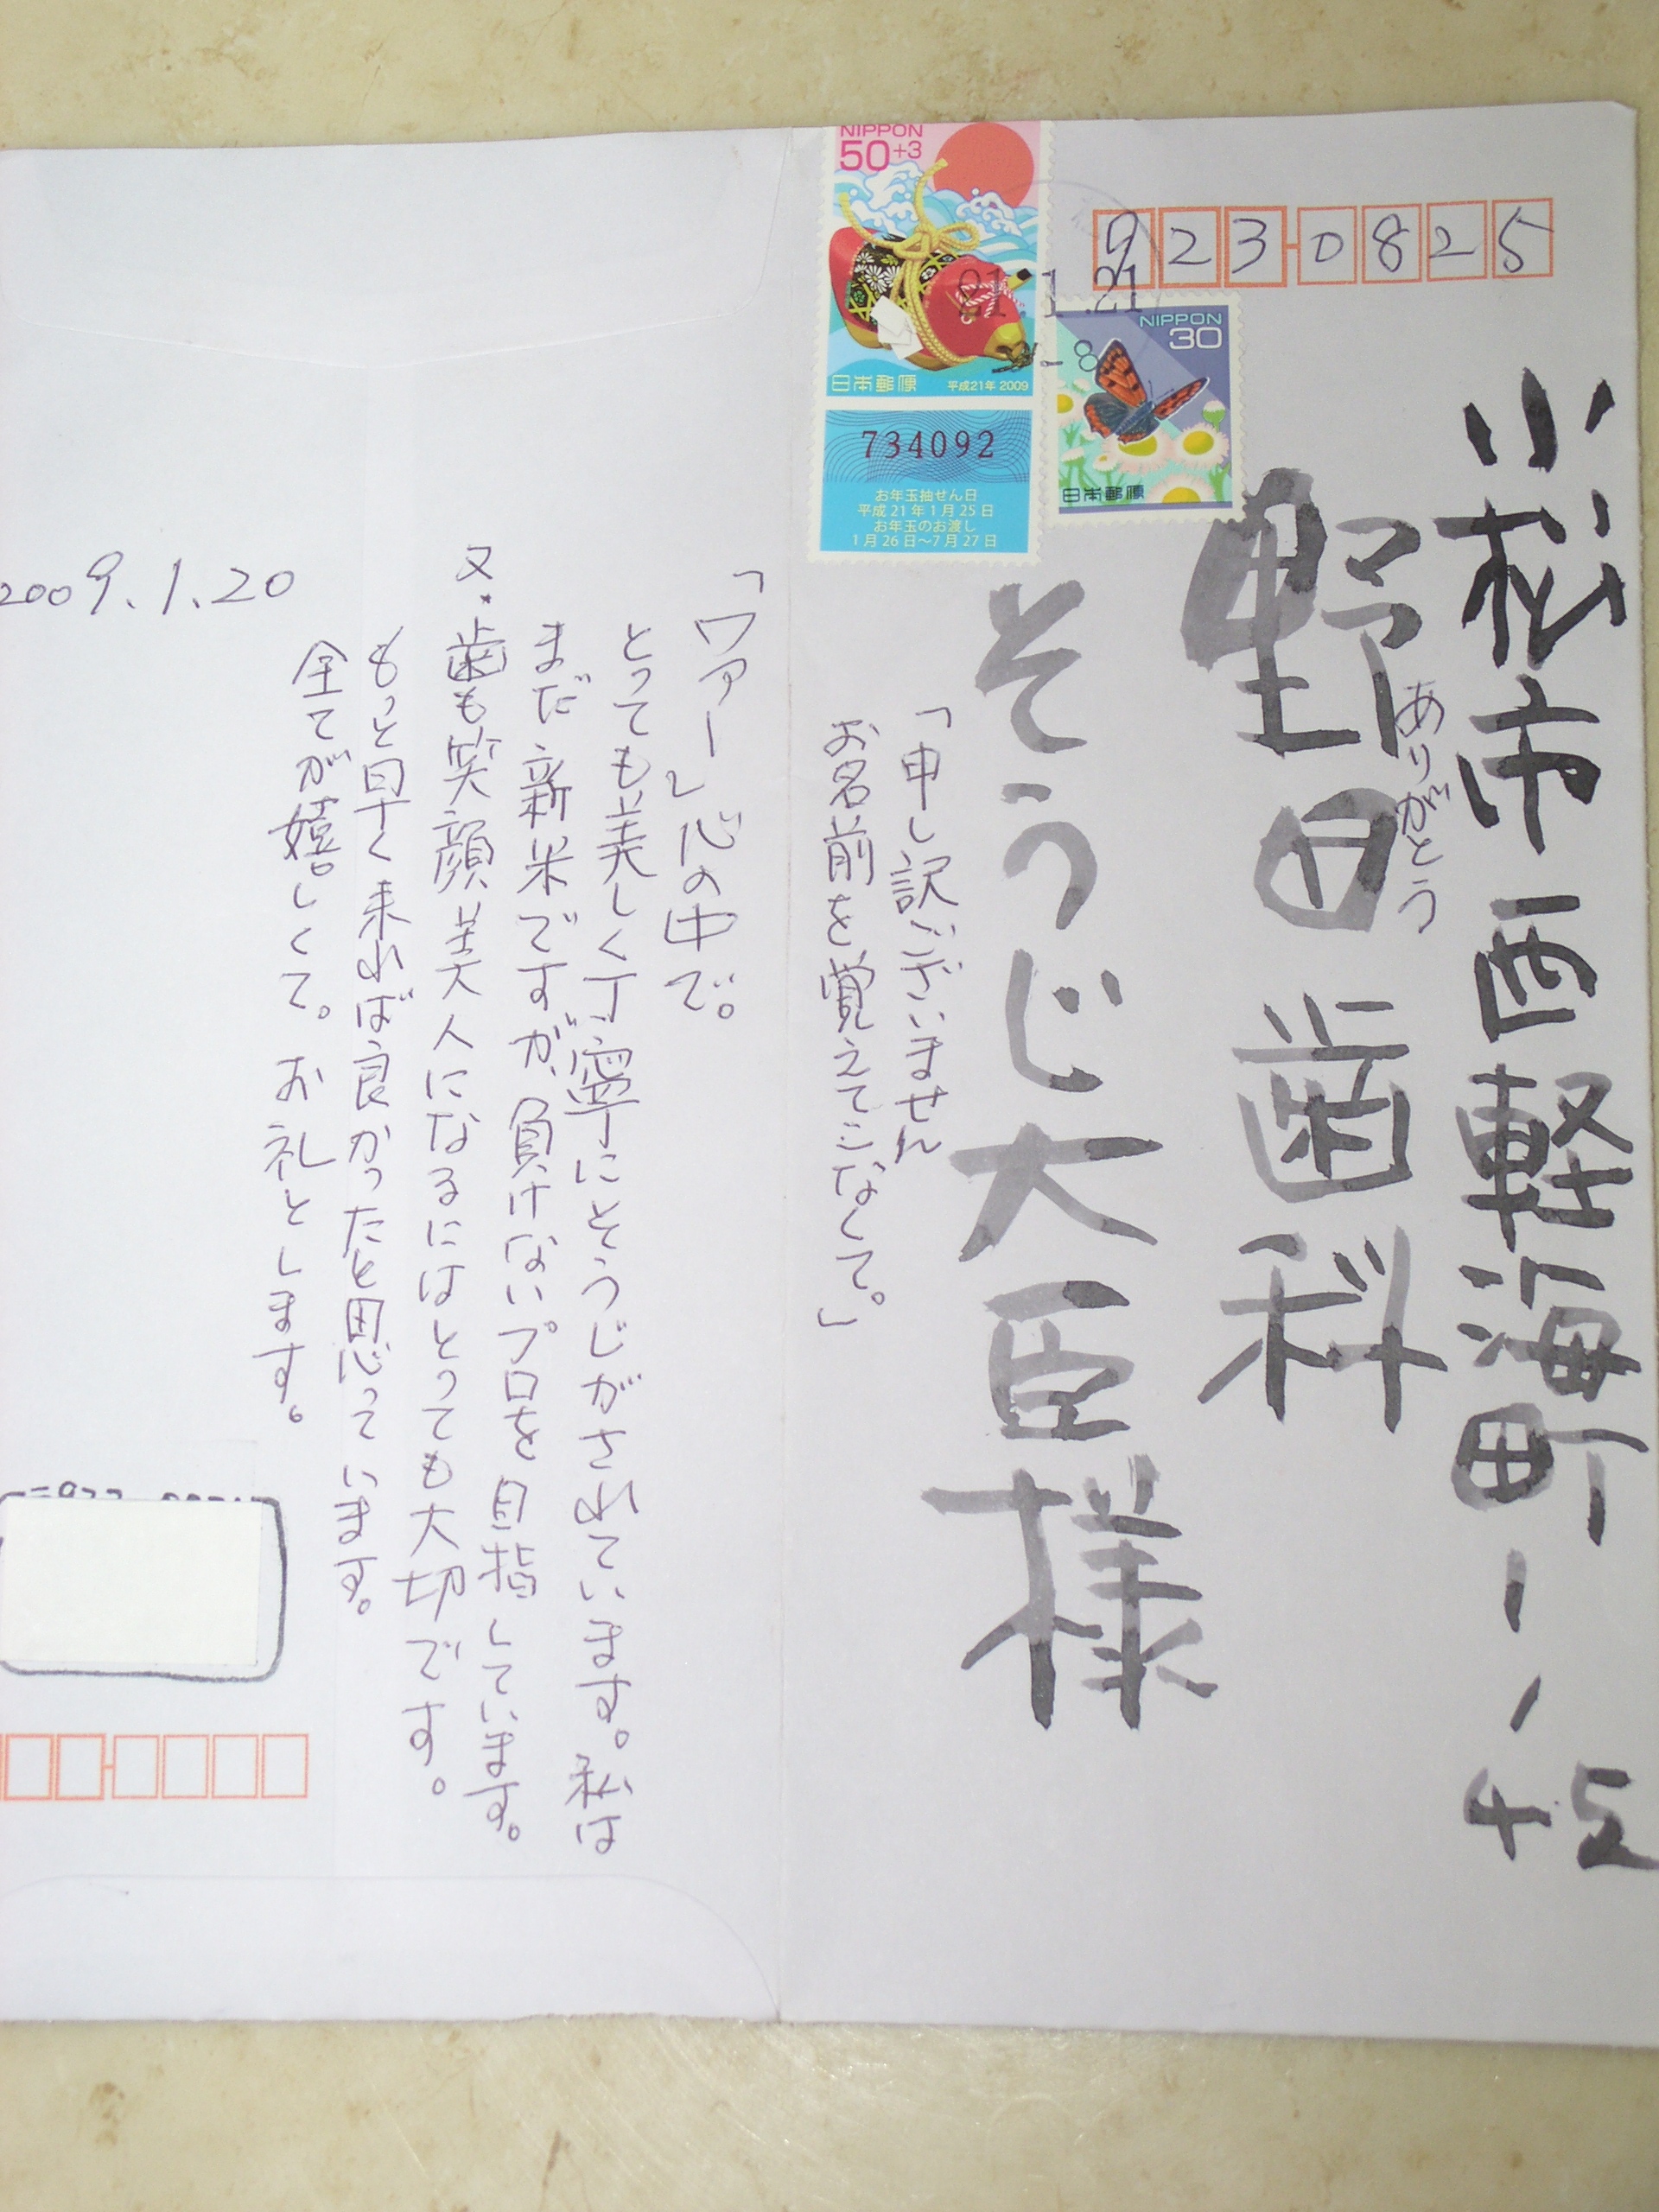 923-0825
小松市西軽海町1-1
45
ありがとう
野田歯科
そうじ大臣様
「申し訳ございません
お名前を覚えてこなくて。」
NIPPON
50+3
日本郵便
平成21年 2009
734092
お年玉抽せん日
平成21年1月25日
お年玉のお渡し
1月26日~7月27日
NIPPON
30
日本郵便
21.1.21
-8
「ワァー」心の中で。
とっても美しく丁寧にとうじがされています。私は
まだ新米ですが、負けないプロを目指しています。
又、歯も笑顔美人になるにはとっても大切です。
もっと早く来れば良かったと思っています。
全てが嬉しくて。お礼とします。
2009.1.20